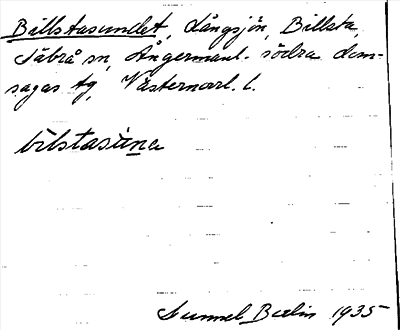 Billstasundet, Långsjön, Billsta,
Säbrå sn, Ångermanl. södra dom-
sagas tg, Västernorrl. l.
bilstasúna
Gunnel Berlin 1935